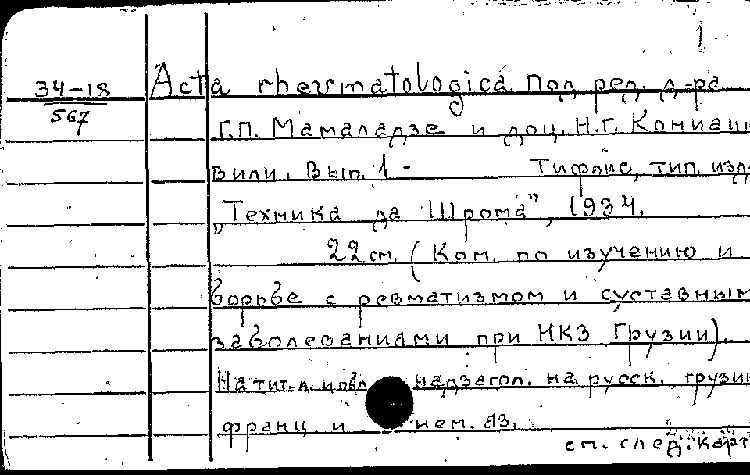 1
34-18
567
Acta rheumatologica. Под ред. д-ра
Г.П. Мамаладзе и доц. Н.Г. Кониаш
вили. Вып. 1 - Тифлис, тип. изд-
„Техника да Шрома", 1934.
22 см. (Ком. по изучению и
борьбе с ревматизмом и суставным
заболеваниями при НКЗ Грузии).
На тит. л. и обл. надзагол. на русск. грузин
франц. и нем. яз.
см. след. карт